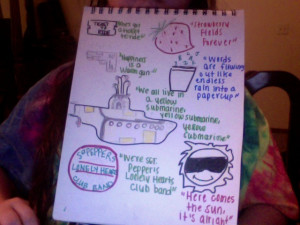 got a
ticket to
ride"
"Strawberry
Fields
Forever"
"Happiness
is a
warm gun"
"Words
are flowing
out like
endless
rain into a
papercup"
"We all live in
a yellow
submarine,
yellow submarine,
yellow
submarine"
PEPPERS
LONELY HEARTS
CLUB BAND
"We're Sgt.
Pepper's
Lonely Hearts
Club Band"
"Here comes
the sun,
it's alright"